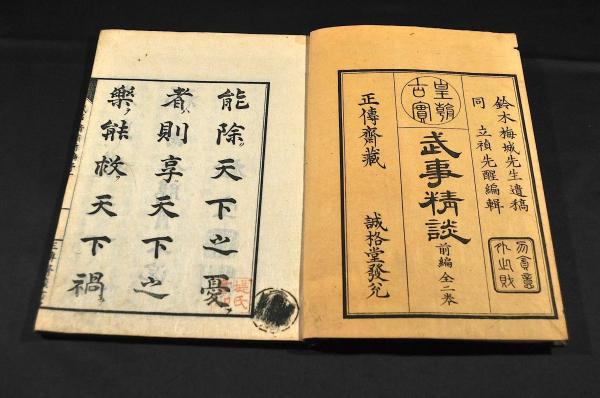 鈴木梅城先生遺稿
同 立禎先醒編輯
勿貪意
外之財
皇朝
古實
武事精談
前編全二卷
正傳齋藏 誠格堂發兌
能除天下之憂
者則享天下之
樂能救天下禍